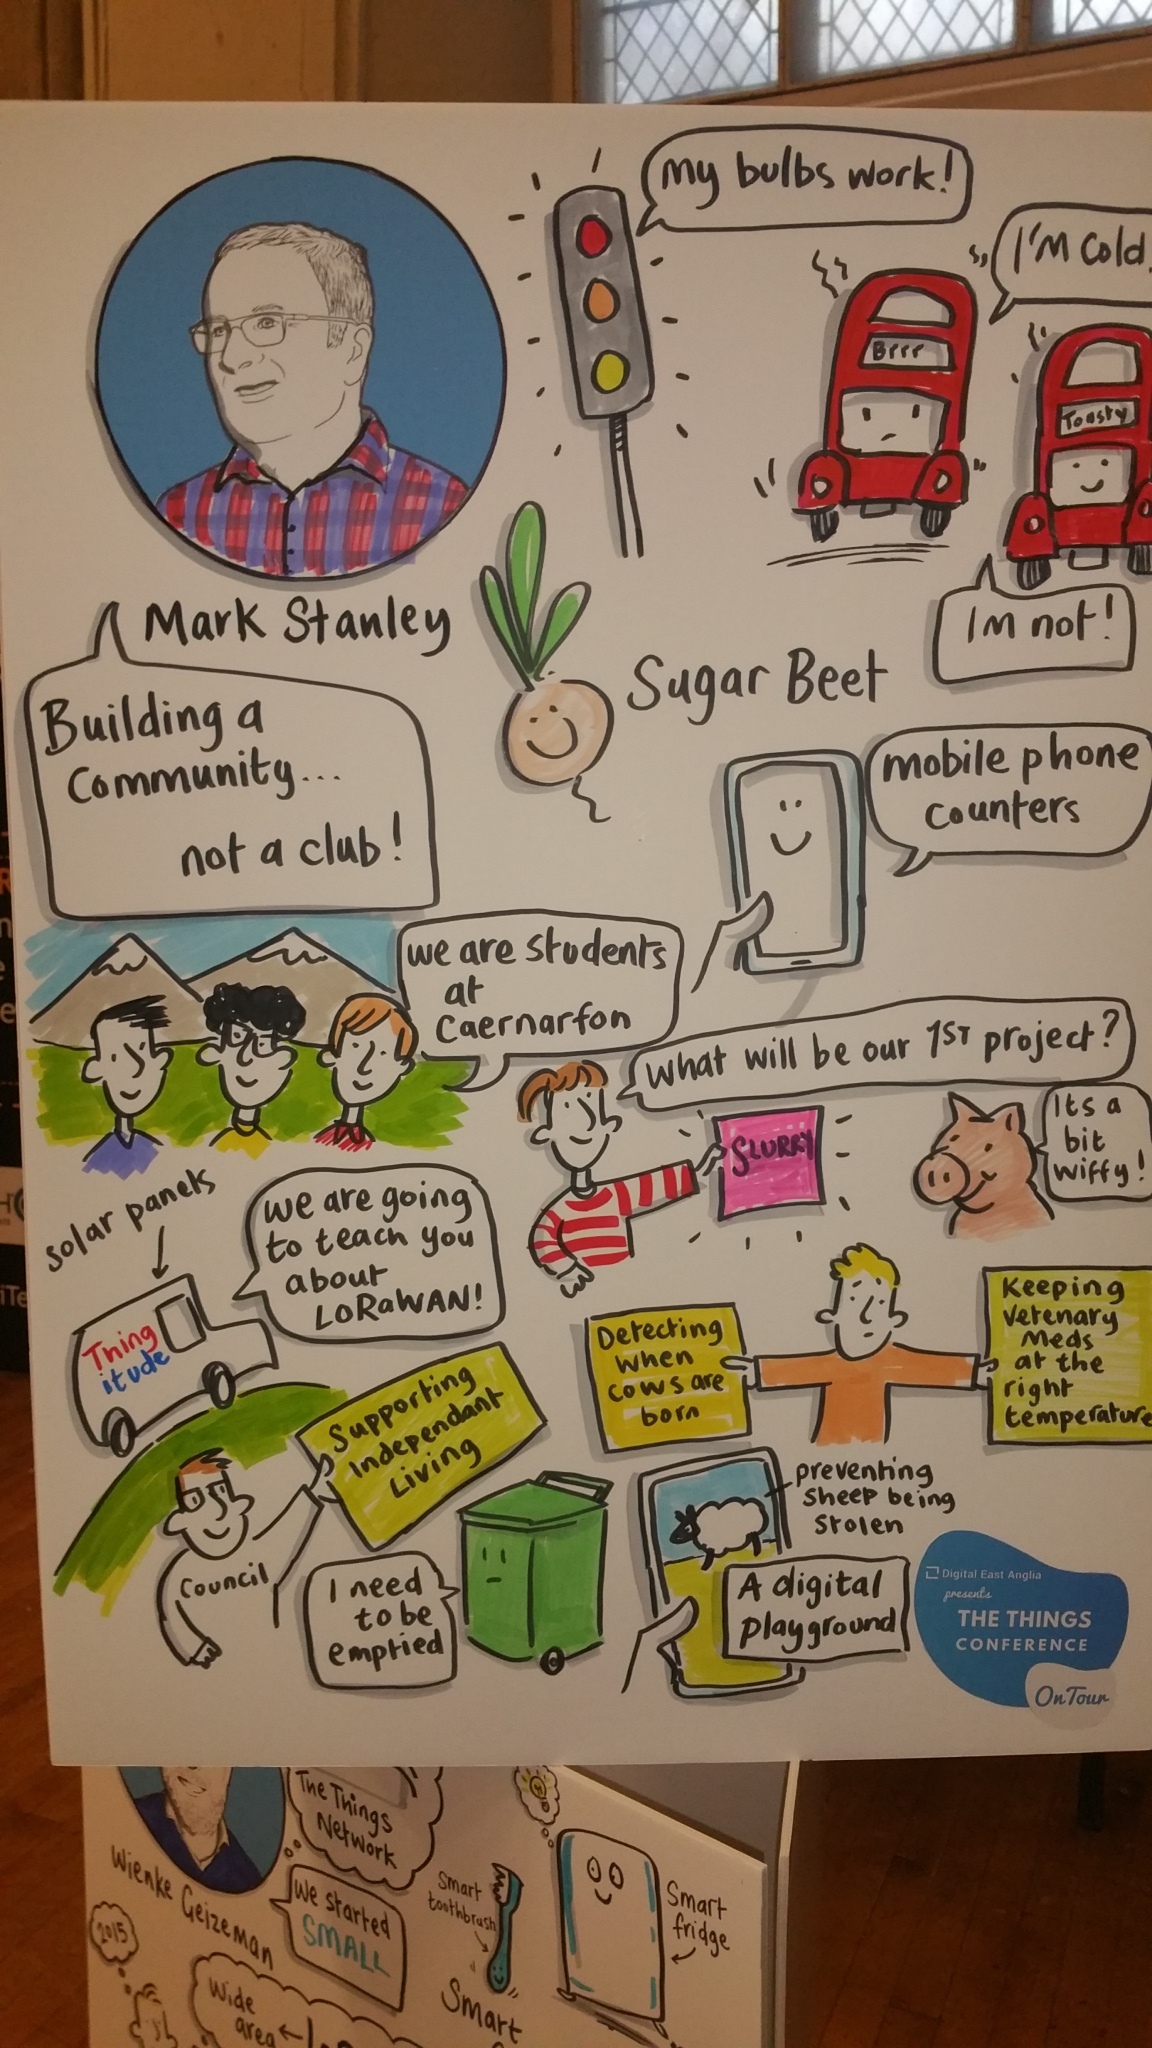 My bulbs work!
I'm cold.
Brrr
Toasty
Im not!
Mark Stanley
Building a
community...
not a club!
Sugar Beet
mobile phone
counters
we are students
at
Caernarfon
what will be our 1ST project?
SLURRY
Its a
bit
wiffy!
solar panels
we are going
to teach you
about
LoRaWAN!
Thing
itude
Detecting
when
cows are
born
Keeping
Vetenary
Meds
at the
right
temperature
Supporting
Independant
Living
Council
I need
to be
emptied
preventing
sheep being
stolen
A digital
playground
Digital East Anglia
presents
THE THINGS
CONFERENCE
On Tour
The Things
Network
Wienke Geizeman
we started
SMALL
2015
Wide
area
Smart
toothbrush
Smart
Smart
fridge